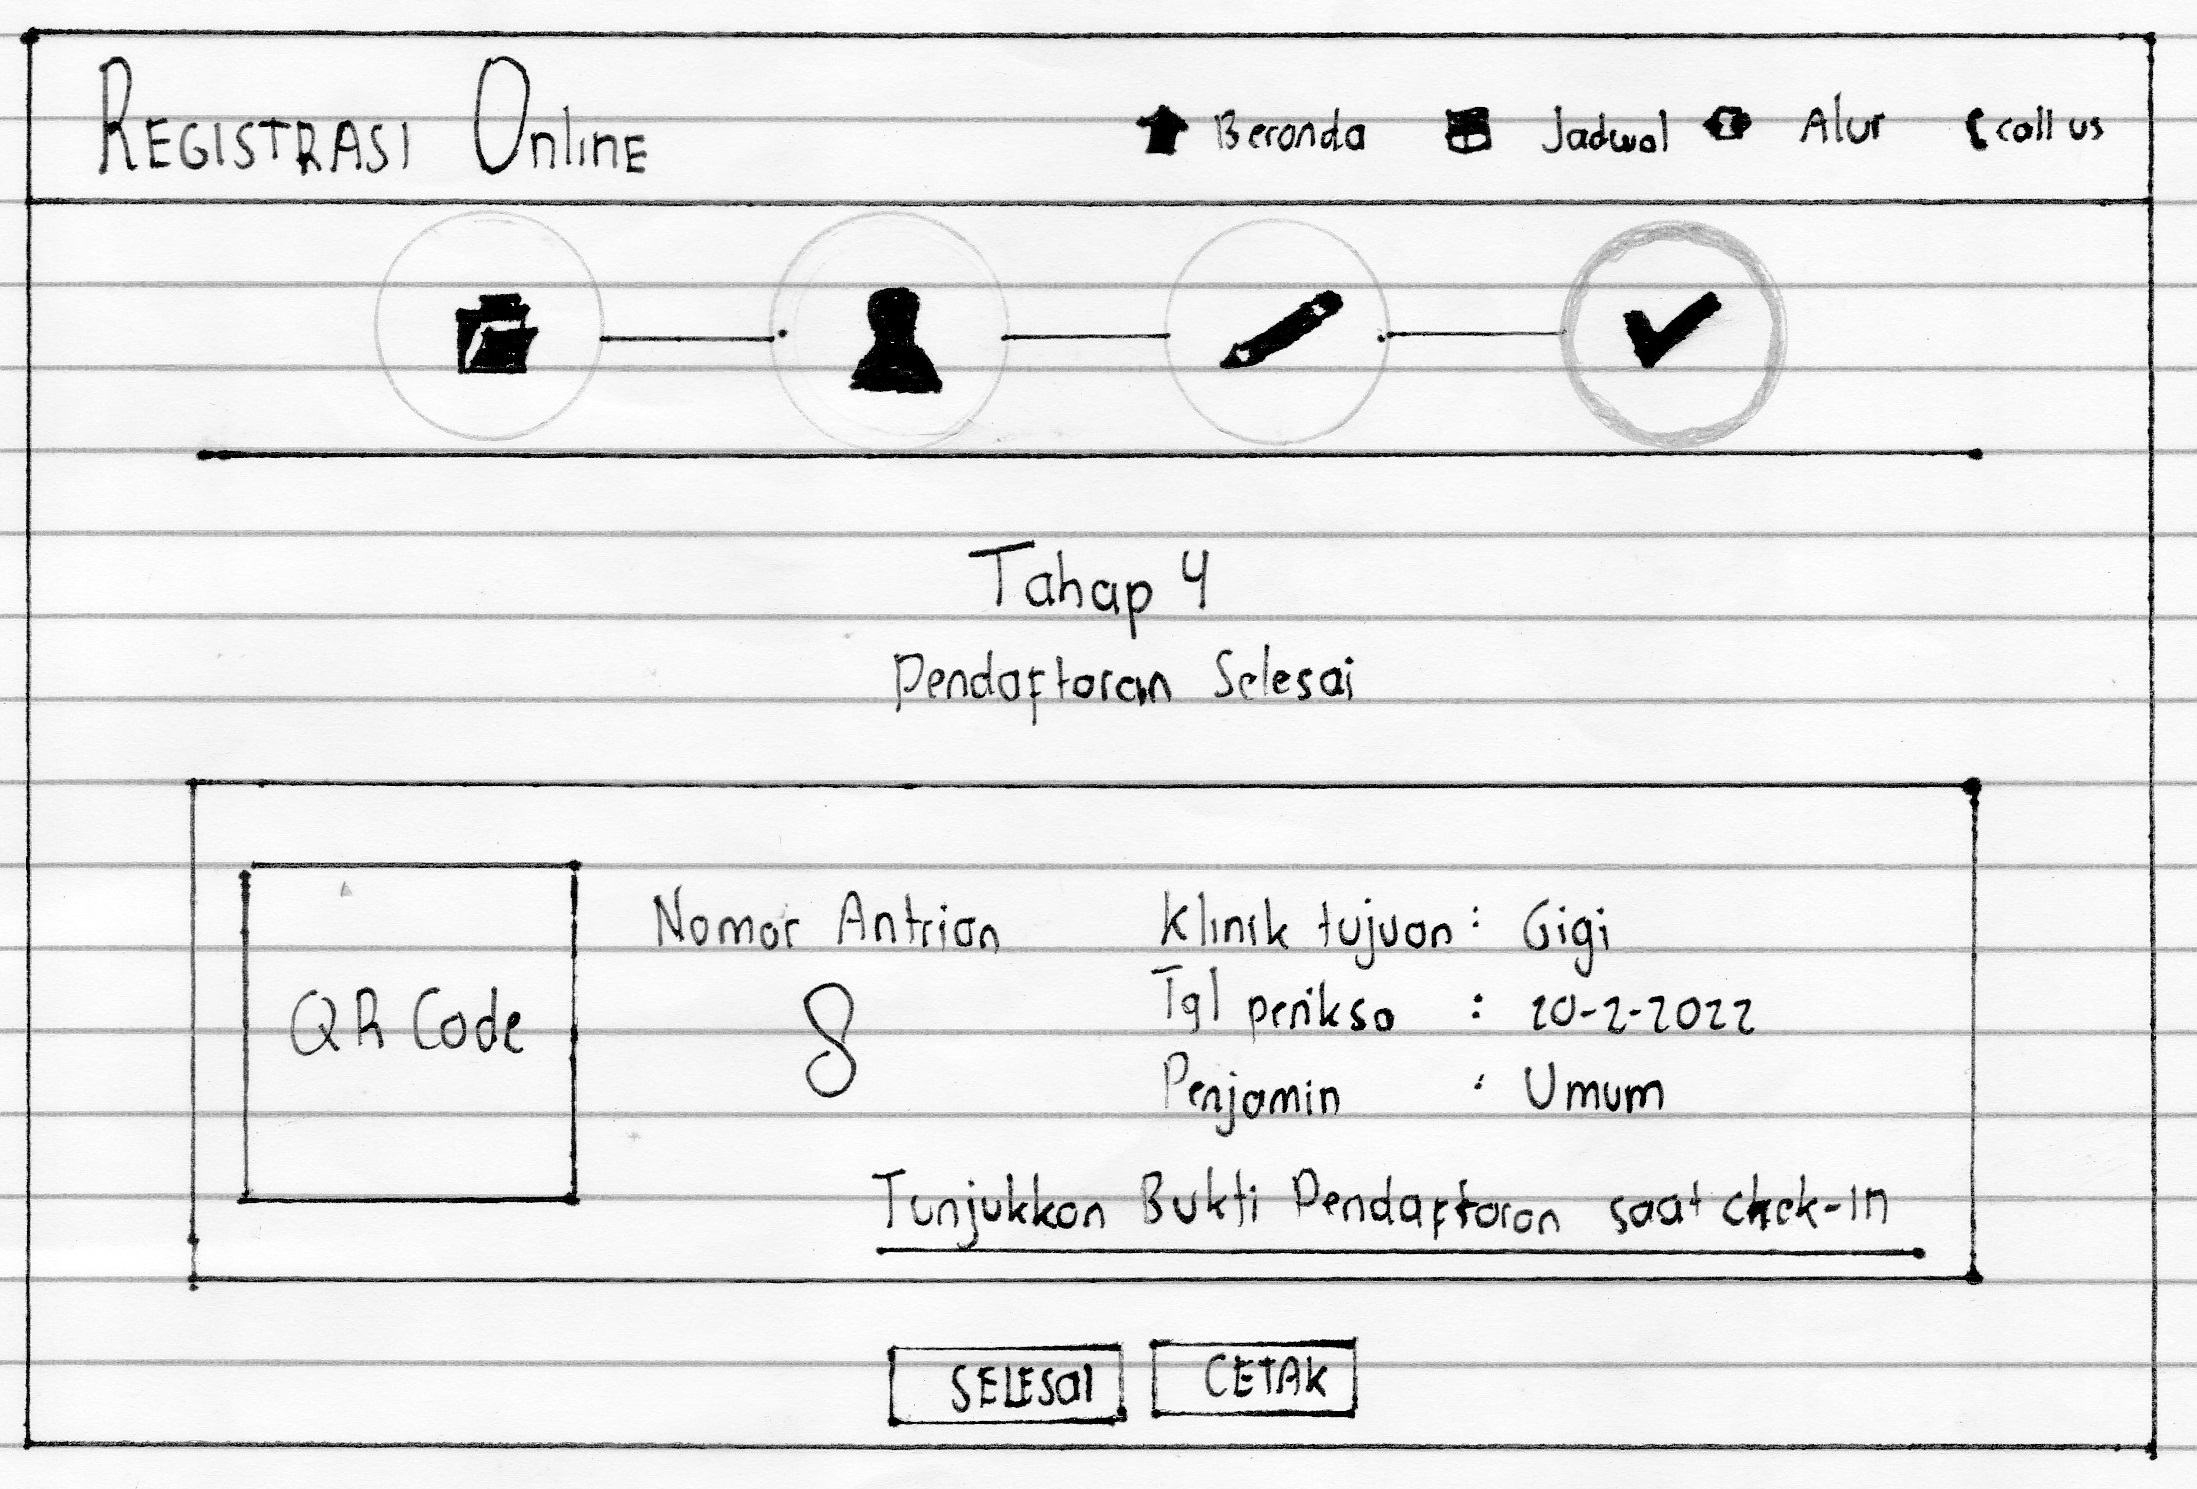 REGISTRASI OnlinE
Beranda Jadwal Alur call us
Tahap 4
Pendaftaran Selesai
QR Code
Nomor Antrian
8
Klinik tujuan : Gigi
Tgl periksa : 20-2-2022
Penjamin : Umum
Tunjukkan Bukti Pendaftaran saat chek-in
SELESai
CETAK